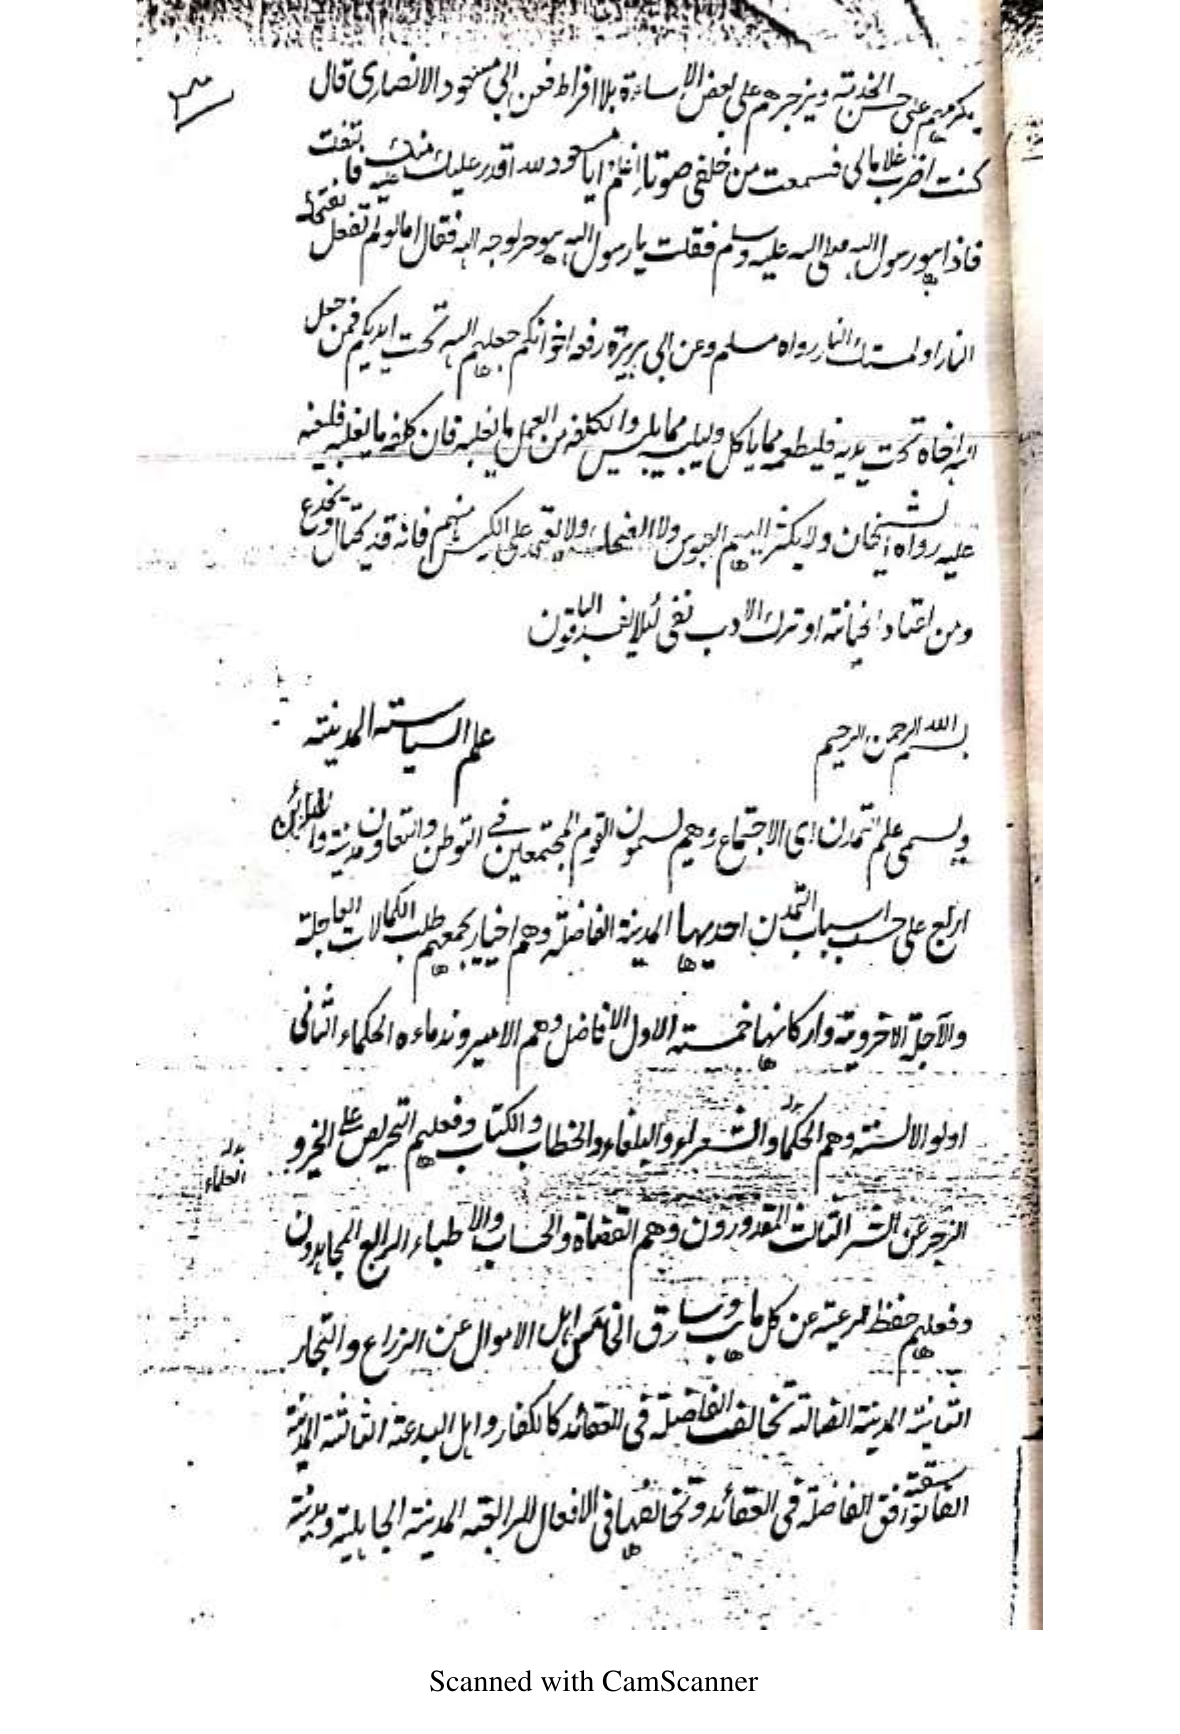 يكرمهم على حسن الخدمة ويزجرهم على بعض الإساءة بلا افراط فعن ابي مسعود الانصاري قال
كنت اضرب غلاما لي فسمعت من خلفي صوتا اعلم ابا مسعود لله اقدر عليك منك عليه فالتفت
فاذا هو رسول الله صلى الله عليه وسلم فقلت يا رسول الله هو حر لوجه الله فقال اما لو لم تفعل
النار او لمستك النار رواه مسلم وعن ابي هريرة رفعه اخوانكم جعلهم الله تحت ايديكم فمن جعل
الله اخاه تحت يديه فليطعمه مما ياكل وليلبسه مما يلبس ولا يكلفه من العمل ما يغلبه فان كلفه ما يغلبه فليعنه
عليه رواه الشيخان ولا يكثر اليهم العبوس ولا الضحك ولا يعتمد على الكيس منهم فانه قد يحتال ويخدع
ومن اعتاد الخيانة او ترك الادب نفي لئلا يفسد الباقون
بسم الله الرحمن الرحيم
علم السياسة المدينة
ويسمى علم التمدن اي الاجتماع وهم يسمون القوم المجتمعين في التوطن والتعاون مدينة والمدائن
اربع على حسب اسباب التمدن احديها المدينة الفاضلة وهم اخيار يجمعهم طلب الكمالات العاجلة
والآجلة الاخروية واركانها خمسة الاول الافاضل وهم الامير وندماءه الحكماء الثاني
اولو الالسنة وهم الحكماء والشعراء والبلغاء والخطاب والكتاب وفعلهم التحريص على الخير و
بدله العلماء
الزجر عن الشر الثالث المقدرون وهم القضاة والحساب والاطباء الرابع المجاهدون
وفعلهم حفظ الرعية عن كل ناهب وسارق الخامس اهل الاموال عن الزراع والتجار
الثانية المدينة الضالة تخالف الفاضلة في العقائد كالكفار واهل البدعة الثالثة المدينة
الفاسقة توافق الفاضلة في العقائد وتخالفها في الافعال الرابعة المدينة الجاهلية ومدينة
Scanned with CamScanner